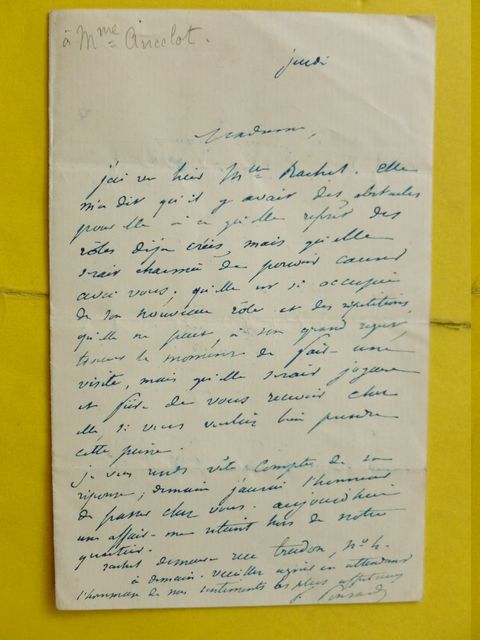 à Mme Ancelot.
jeudi
Madame,
j'ai vu hier Mlle Rachel. Elle
m'a dit qu'il y avait des obstacles
pour elle à ce qu'elle reprît des
rôles déjà créés, mais qu'elle
serait charmée de pouvoir causer
avec vous. qu'elle est si occupée
de son nouveau rôle et des répétitions,
qu'elle ne peut à son grand regret,
trouver le moment de faire une
visite, mais qu'elle serait joyeuse
et fière de vous recevoir chez
elle, si vous vouliez bien prendre
cette peine.
je vous rends vite compte de sa
réponse; demain j'aurai l'honneur
de passer chez vous. aujourd'hui
une affaire me retient hors de notre
quartier.
rachel demeure rue trudon, No 4.
à demain. veuillez agréer en attendant
l'hommage de mes sentiments les plus affectueux
Ponsard